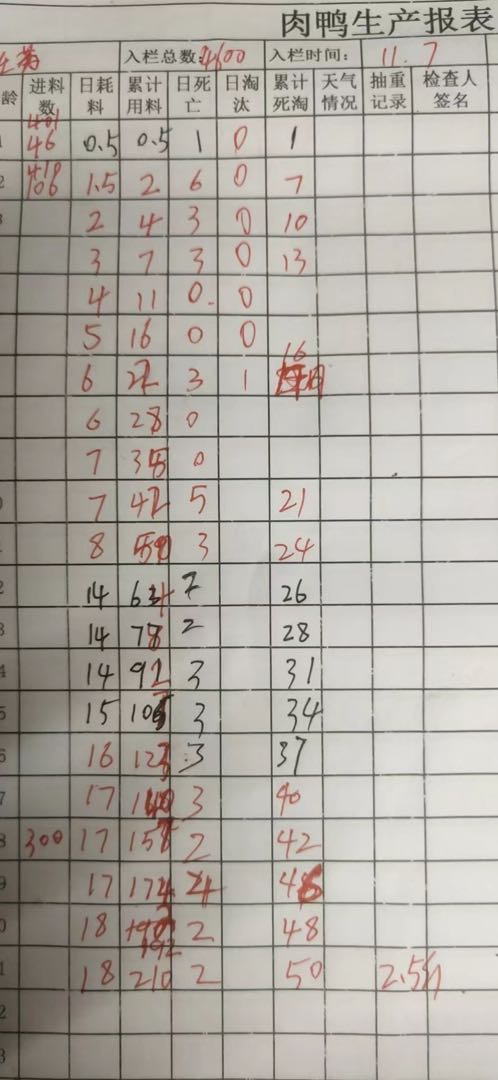 肉鸭生产报表
入栏总数: 4600 入栏时间: 11.7
龄 进料数 日耗料 累计用料 日死亡 日淘汰 累计死淘 天气情况 抽重记录 检查人签名
46 0.5 0.5 1 0 1
106 1.5 2 6 0 7
2 4 3 0 10
3 7 3 0 13
4 11 0 0
5 16 0 0
6 22 3 1 16
6 28 0
7 35 0
7 42 5 21
8 50 3 24
14 64 2 26
14 78 2 28
14 92 3 31
15 107 3 34
16 123 3 37
17 140 3 40
300 17 157 2 42
17 174 4 46
18 192 2 48
18 210 2 50 2.5斤